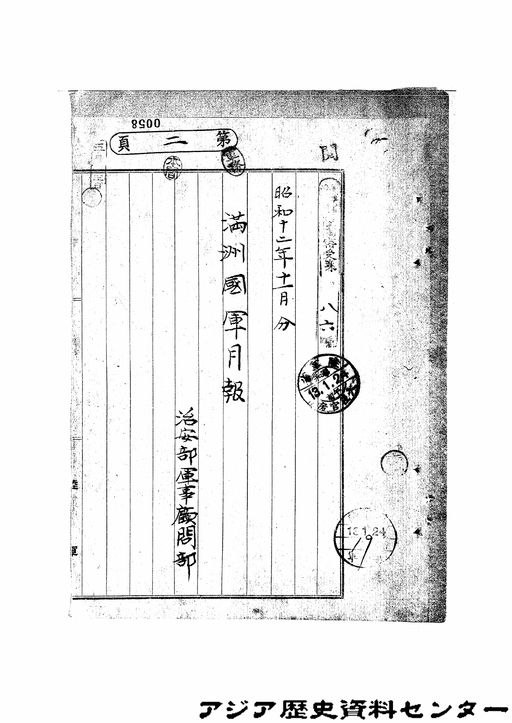 0058
第二頁
八六
昭和十二年十一月分
満洲國軍月報
治安部軍事顧問部
13.1.24
13.1.24
アジア歴史資料センター